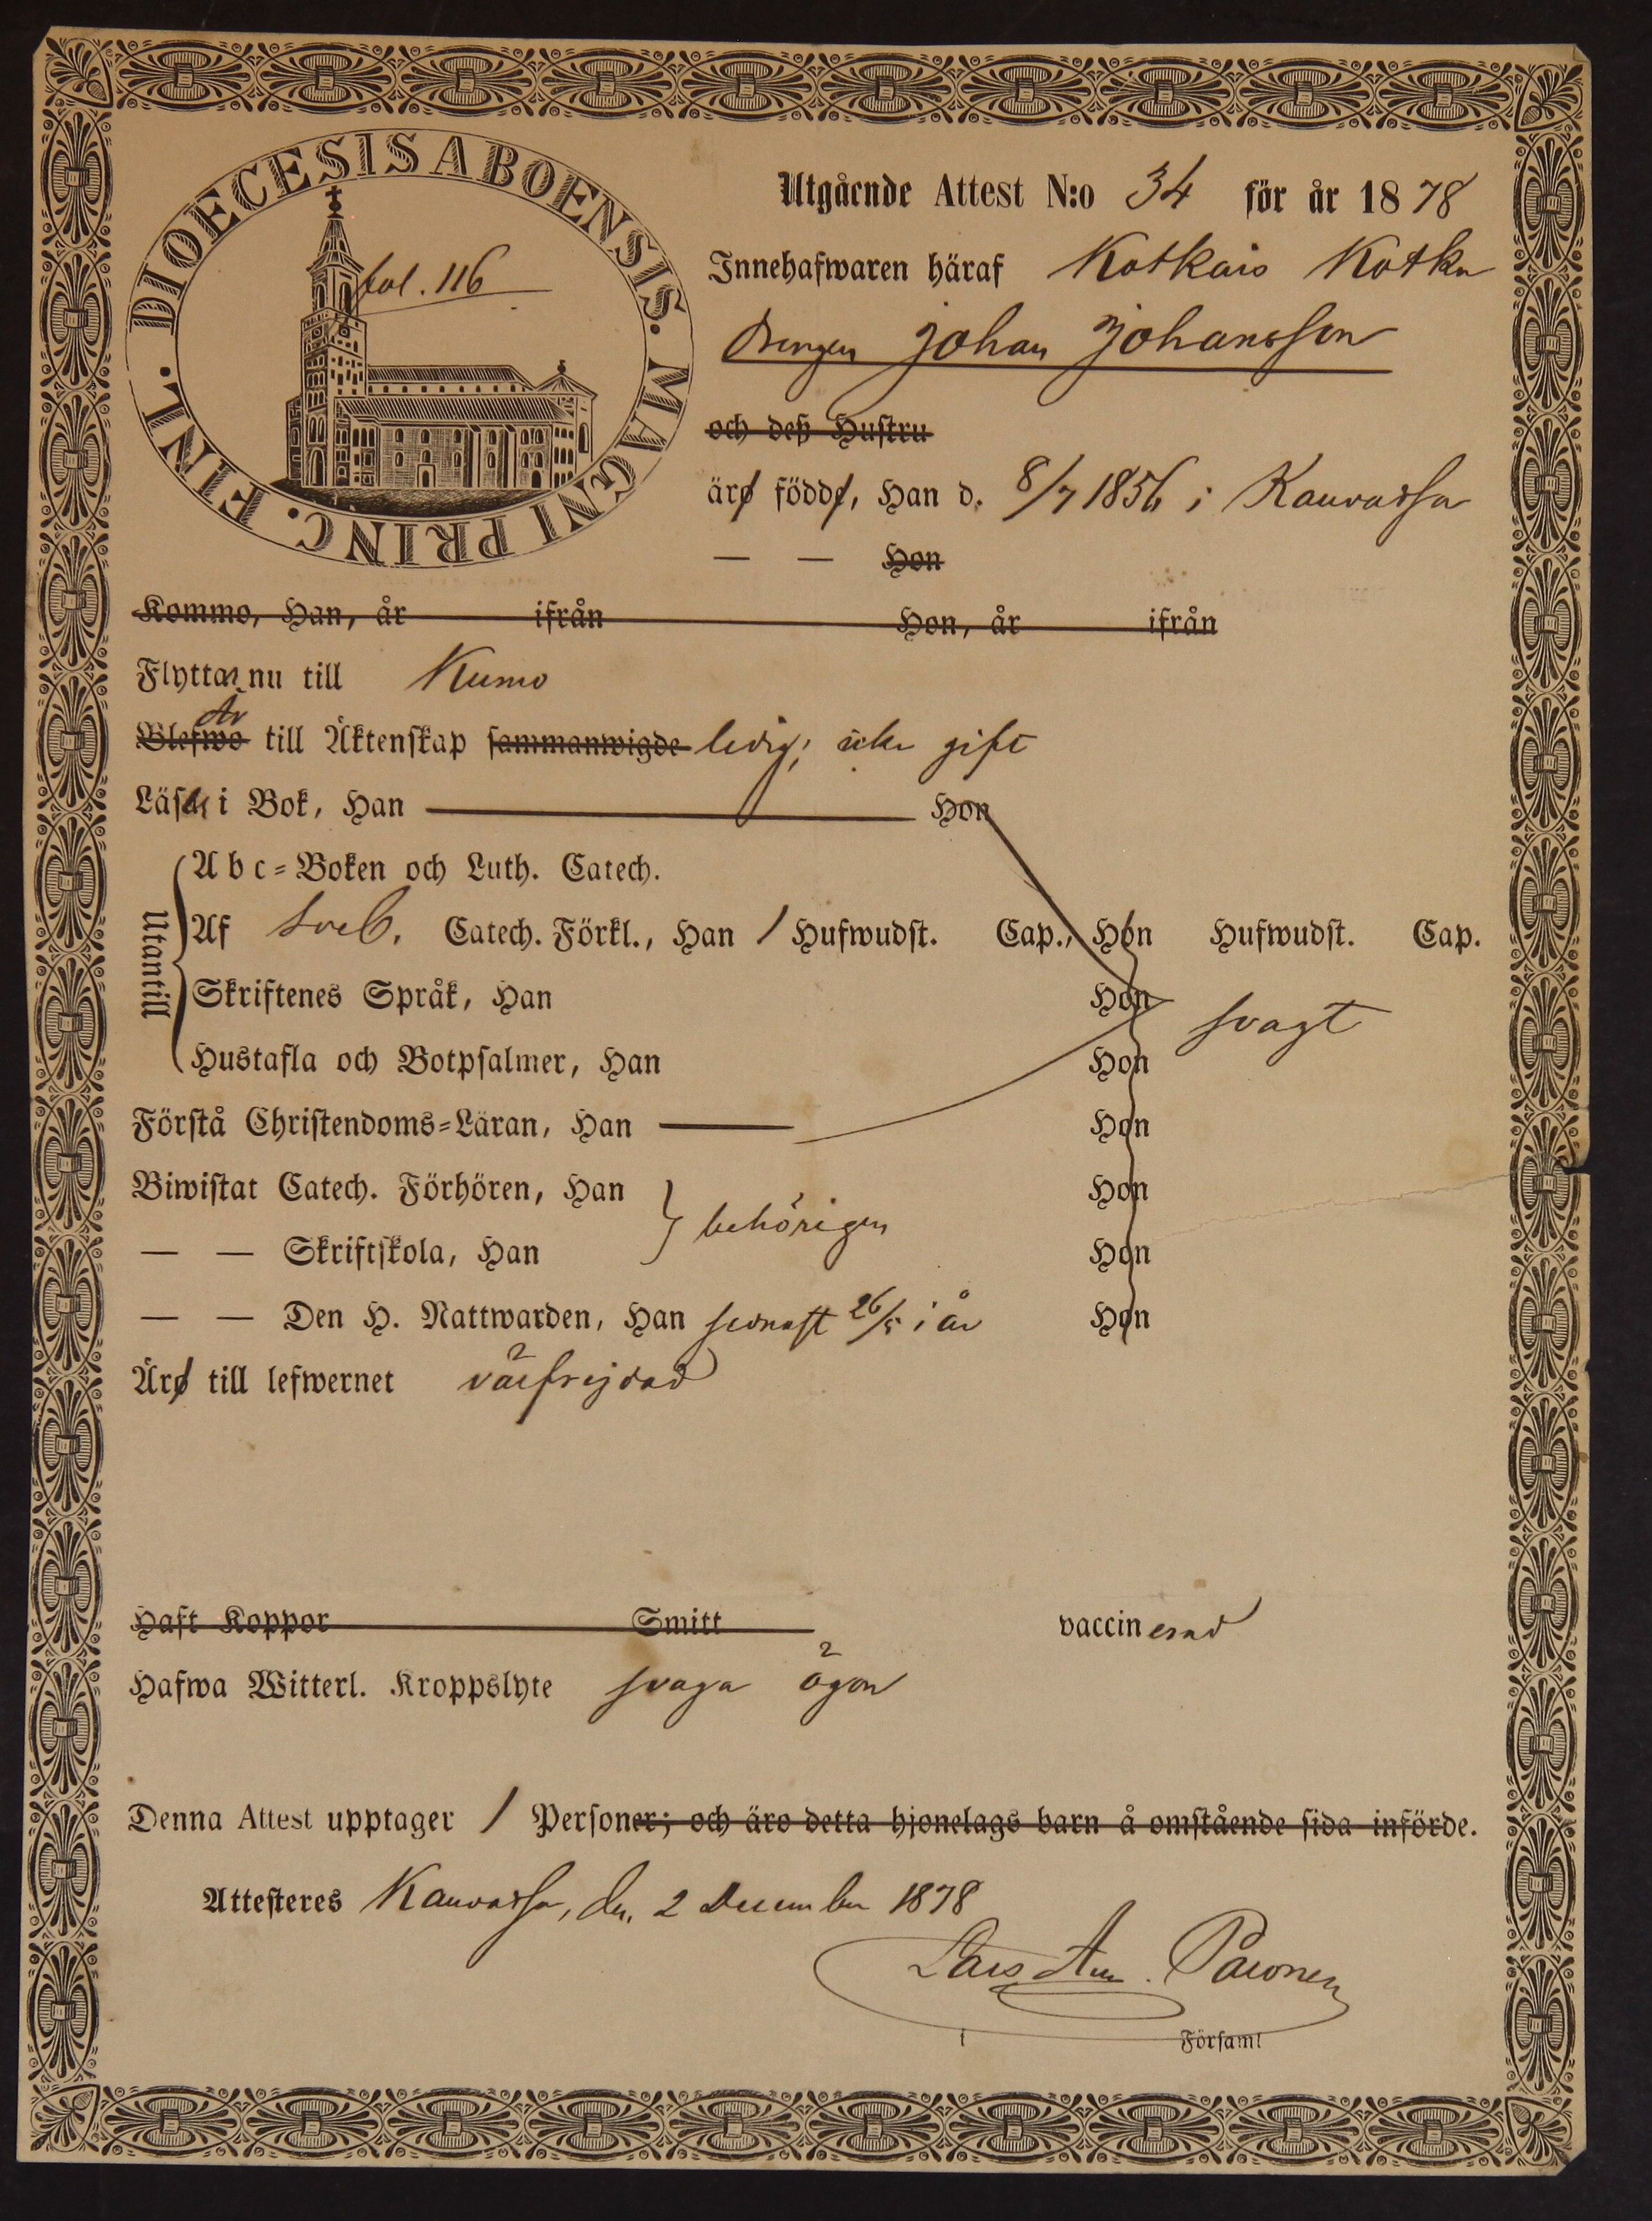 DIOECESIS ABOENSIS. MAGNI PRINC. FINL.
fol. 116
Utgående Attest N:o 34 för år 1878
Innehafwaren häraf Kotkais Kotka
Drengen Johan Johansson
och deß Hustru
äro födde, Han d. 8/7 1856 i Kauvatsa
— — Hon
Kommo, Han, år ifrån Hon, år ifrån
Flyttar nu till Kumo
Är
Blefwo till Äktenskap sammanwigde ledig; icke gift
Läser i Bok, Han Hon
Utantill
Abc=Boken och Luth. Catech.
Af Sveb. Catech. Förkl., Han 1 Hufwudst. Cap., Hon Hufwudst. Cap.
Skriftenes Språk, Han Hon svagt
Hustafla och Botpsalmer, Han Hon
Förstå Christendoms=Läran, Han Hon
Biwistat Catech. Förhören, Han Hon
behörigen
— — Skriftskola, Han Hon
— — Den H. Nattwarden, Han sednast 26/5 i år Hon
Äro till lefwernet välfrejdad
Haft Koppor Smitt vaccinerad
Hafwa Witterl. Kroppslyte svaga ögon
Denna Attest upptager 1 Personer; och äro detta hjonelags barn å omstående sida införde.
Attesteres Kauvatsa, den 2 December 1878
Lars
i Församl